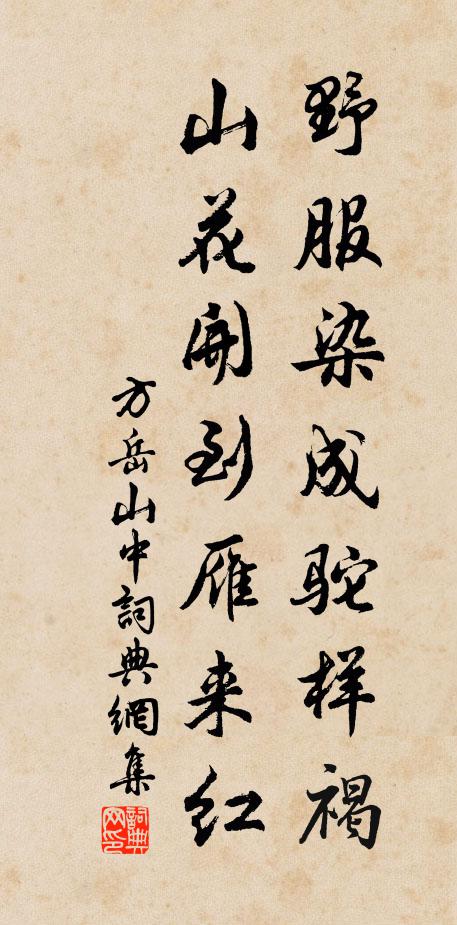 野服染成駝样褐
山花開到雁来红
方岳山中詞典網集
詞典网印